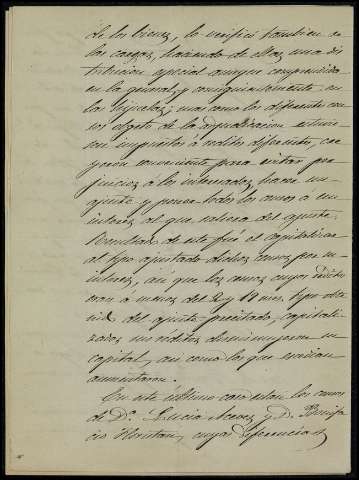 de los bienes, lo verificó tambien en
las cargas, haciendo de ellas una dis
tribucion especial aunque comprendida
en la general, y consiguientemente en
las hijuelas; mas como los diferentes cen
sos objeto de la adjudicacion estuvie
sen impuestos á redito diferentes, cre
yeron conveniente para evitar per
juicios á los interesados, hacer un
ajuste y poner todos los censos á un
interes al que saliera del ajuste.
Resultado de este fué el capitalizar
al tipo ajustado dichos censos por su
interes, así que los censos cuyos réditos
eran á menos del 2 y 19 mrs. tipo obte
nido del ajuste precitado, capitali
zados sus réditos disminuyeron su
capital, así como los que tenian
aumentaron.
En este último caso estan los censos
de Dª. Lucia Nevez y D. Bonifa
cio cuyas diferencias